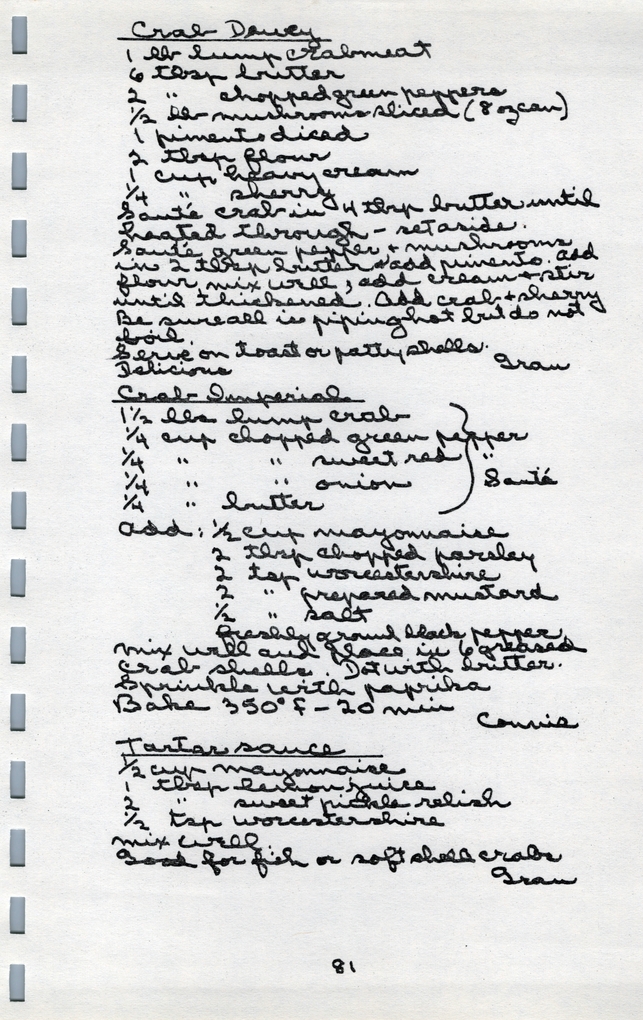 Crab Dewey
1 lb lump crabmeat
6 tbsp butter
2 " chopped green peppers
1/2 lb mushrooms sliced (8 oz can)
1 pimento diced
2 tbsp flour
1 cup heavy cream
1/4 " sherry
Sauté crab in 4 tbsp butter until
heated through - set aside.
Sauté green pepper + mushrooms
in 2 tbsp butter + add pimento. Add
flour, mix well, add cream + stir
until thickened. Add crab + sherry
Be sure all is piping hot but do not
boil.
Serve on toast or patty shells.
Delicious Gran
Crab Imperial
1 1/2 lbs lump crab
1/4 cup chopped green pepper
1/4 " " sweet red "
1/4 " " onion Sauté
1/4 " butter
Add: 1/2 cup mayonnaise
2 tbsp chopped parsley
2 tsp worcestershire
2 " prepared mustard
1/2 " salt
freshly ground black pepper
Mix well and place in 6 greased
crab shells. Dot with butter.
Sprinkle with paprika
Bake 350° F - 20 min
Connie
Tarter Sauce
1/2 cup mayonnaise
1 tbsp lemon juice
2 " sweet pickle relish
1/2 tsp worcestershire
Mix well.
Good for fish or soft shell crabs
Gran
81